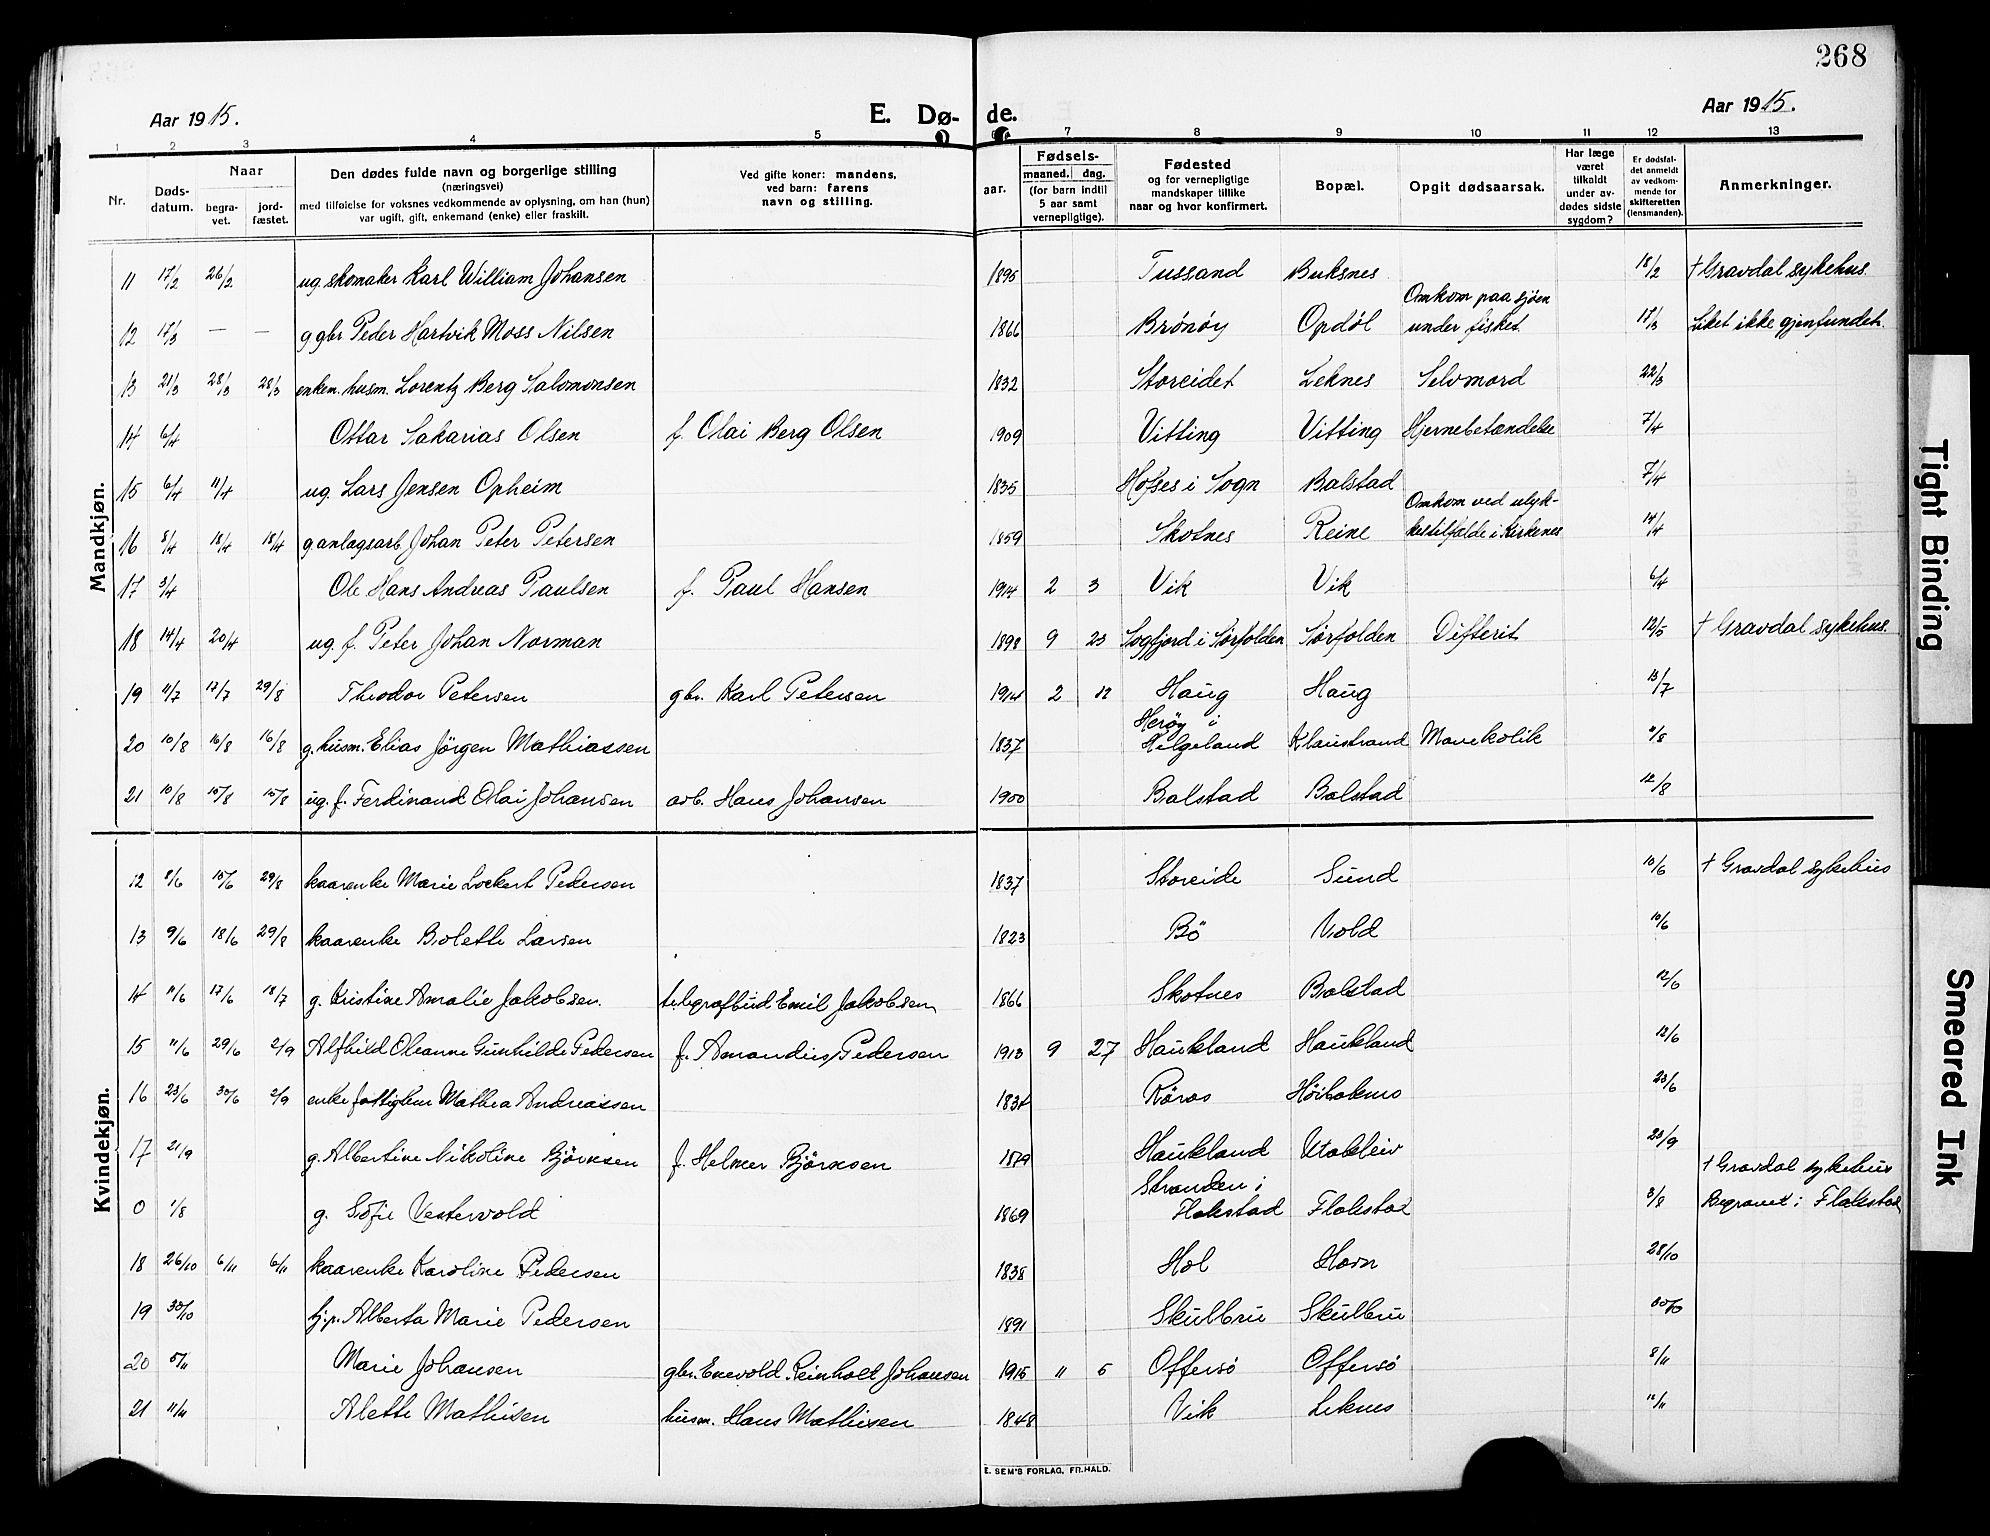 268
Aar 1915.
E. Dø- de.
Aar 1915.
1 2 3 4 5 7 8 9 10 11 12 13
Nr.
Døds-datum.
Naar
begra-vet.
jord-fæstet.
Den dødes fulde navn og borgerlige stilling
(næringsvei)
med tilføielse for voksnes vedkommende av oplysning, om han (hun)
var ugift, gift, enkemand (enke) eller fraskilt.
Ved gifte koner: mandens,
ved barn: farens
navn og stilling.
aar.
Fødsels-
maaned. dag.
(for barn indtil
5 aar samt
vernepligtige).
Fødested
og for vernepligtige
mandskaper tillike
naar og hvor konfirmert.
Bopæl.
Opgit dødsaarsak.
Har læge
været
tilkaldt
under av-
dødes sidste
sygdom?
Er dødsfal-
det anmeldt
av vedkom-
mende for
skifteretten
(lensmanden).
Anmerkninger.
Mandkjøn.
11 17/2 26/2 ug. skomaker Karl William Johansen 1895 Tussand Buksnes 18/2 † Gravdal sykehus.
12 17/3 — — g. gbr Peder Hartvik Moss Nilsen 1866 Brønøy Opdøl Omkom paa sjøen
under fisket. 17/3 Liket ikke gjenfundet.
13 21/3 28/3 28/3 enkem. husm. Lorentz Berg Salomonsen 1832 Storeidet Leknes Selvmord 22/3
14 6/4 Ottar Sakarias Olsen f. Olai Berg Olsen 1909 Vitting Vitting Hjernebetændelse 7/4
15 6/4 11/4 ug. Lars Jensen Opheim 1835 Hofses i Sogn Balstad 7/4
16 8/4 18/4 18/4 g. anlægsarb. Johan Peter Petersen 1859 Skotnes Reine Omkom ved ulyk-
kestilfælde i Kirkenes 14/4
17 3/4 Ole Hans Andreas Paulsen f. Paul Hansen 1914 2 3 Vik Vik 6/4
18 14/4 20/4 ug. f. Peter Johan Norman 1898 9 23 Sagfjord i Sørfolden Sørfolden Difterit 12/5 † Gravdal sykehus.
19 11/7 17/7 29/8 Theodor Petersen gbr. Karl Petersen 1914 2 12 Haug Haug 13/7
20 10/8 16/8 16/8 g. husm. Elias Jörgen Mathiassen 1837 Herøy i
Helgeland Klaustrand Mavekolik 11/8
21 10/8 15/8 15/8 ug. f. Ferdinand Olai Johansen arb. Hans Johansen 1900 Balstad Balstad 12/8
Kvindekjøn.
12 8/6 15/6 29/8 kaarenke Marie Lockert Pedersen 1837 Storeide Sund 10/6 † Gravdal sykehus
13 9/6 18/6 29/8 kaarenke Bolette Larsen 1823 Bö Vold 10/6
14 11/6 17/6 18/7 g. Kristine Amalie Jakobsen. telegrafbud Emil Jakobsen 1866 Skotnes Balstad 12/6
15 11/6 29/6 2/9 Alfhild Oleanne Gunhilde Pedersen f. Amandus Pedersen 1913 9 27 Haukland Haukland 12/6
16 23/6 30/6 2/9 enke fattiglem Mathea Andreassen 1834 Röros 23/6
17 21/9 g. Albertine Nikoline Björnsen f. Helmer Björnsen 1879 Haukland Utakleiv 23/9
0 1/8 g. Sofie Vestervold 1869 Stranden i
Flakstad Flakstad 3/8 † Gravdal sykehus
Begravet i Flakstad
18 26/10 6/11 6/11 kaarenke Karoline Pedersen 1838 Hol Havn 28/10
19 30/10 hj.p. Alberta Marie Pedersen 1891 Skulbru Skulbru 30/10
20 5/11 Marie Johansen gbr. Enevold Reinholt Johansen 1915 11 5 Offersö Offersö 8/11
21 11/11 Alette Mathisen husm. Hans Mathisen 1848 Vik Leknes 12/11
E. SEM'S FORLAG, FR.HALD.
Tight Binding
Smeared Ink